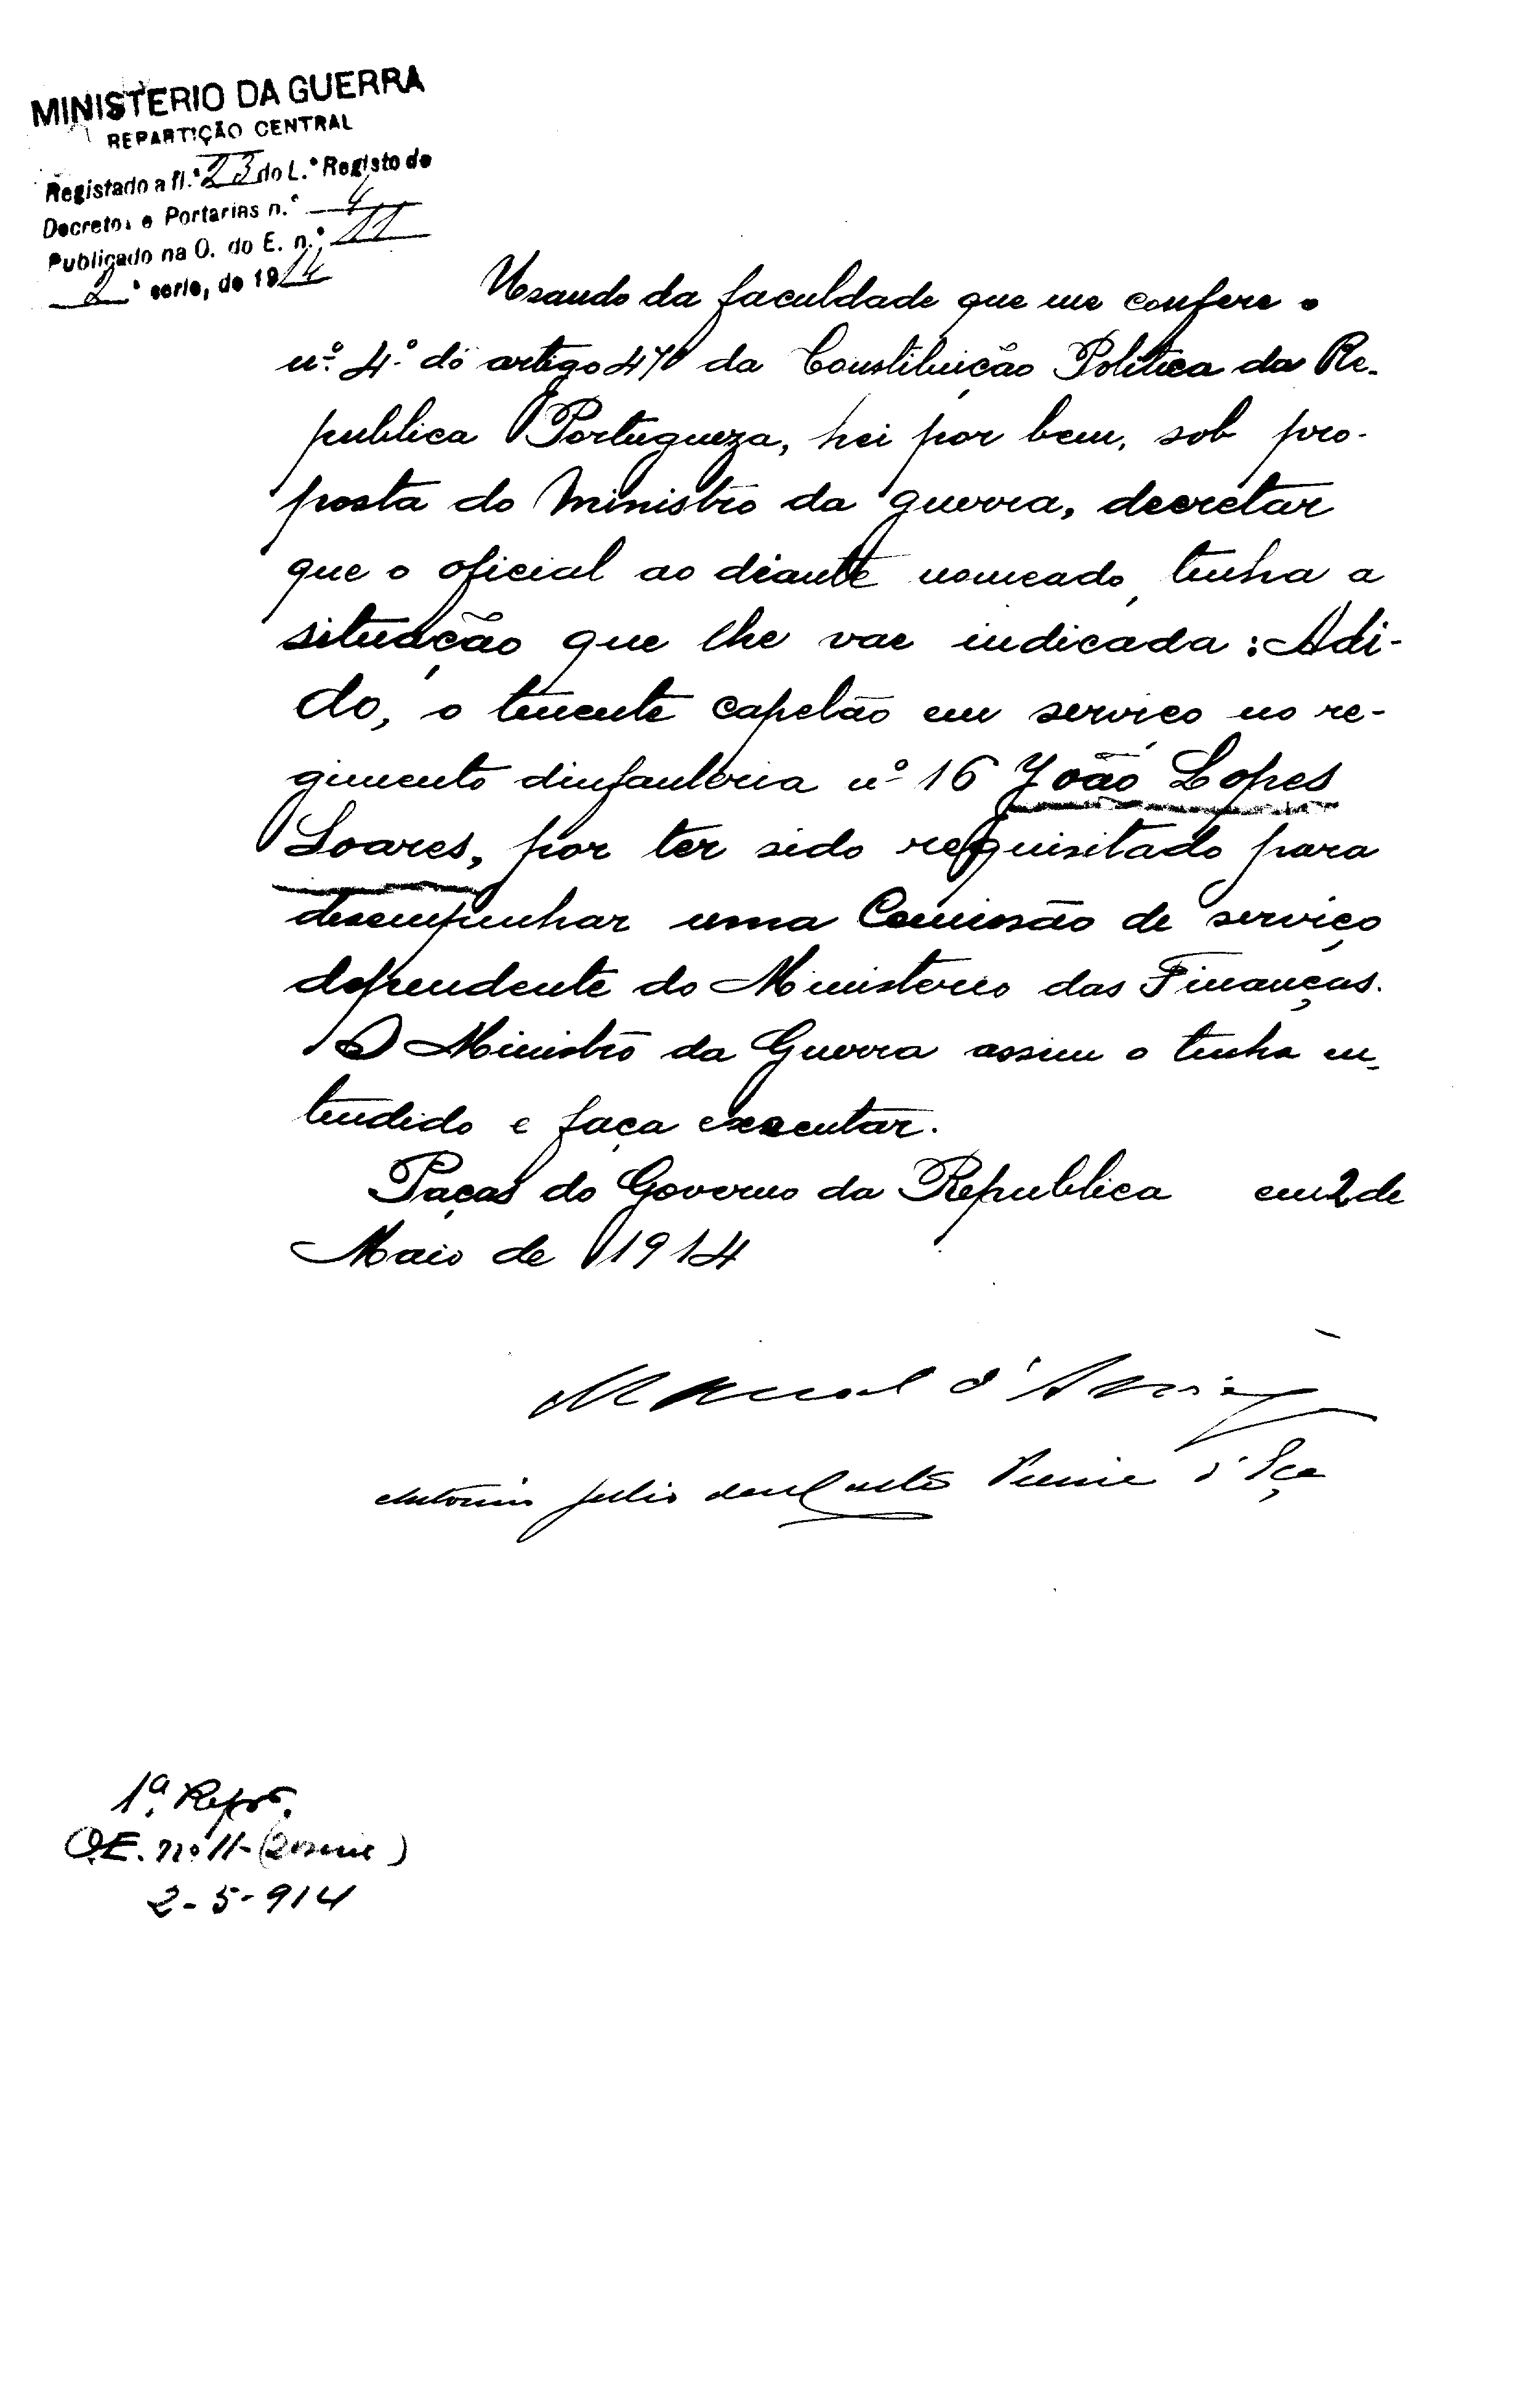 MINISTERIO DA GUERRA
REPARTIÇÃO CENTRAL
Registado a fl.ª 23 do L.º Registo de
Decretos e Portarias n.º 4
Publicado na O. do E. n.º 11
2ª serie, de 1914
Usando da faculdade que me confere o
nº 4º do artigo 47º da Constituição Politica da Re-
publica Portugueza, hei por bem, sob pro-
posta do Ministro da guerra, decretar
que o oficial ao diante nomeado, tenha a
situação que lhe vae indicada: Adi-
do, o tenente capelão em serviço no re-
gimento dinfanteria nº 16 João Lopes
Soares, por ter sido requisitado para
desempenhar uma Comissão de serviço
dependente do Ministerio das Finanças.
O Ministro da Guerra assim o tenha en-
tendido e faça executar.
Paços do Governo da Republica em 2 de
Maio de 1914
Manuel d'Arriaga
Antonio Julio da Costa Pereira d'Eça
1ª Repão.
O.E. nº 11-(2ª serie)
2-5-914